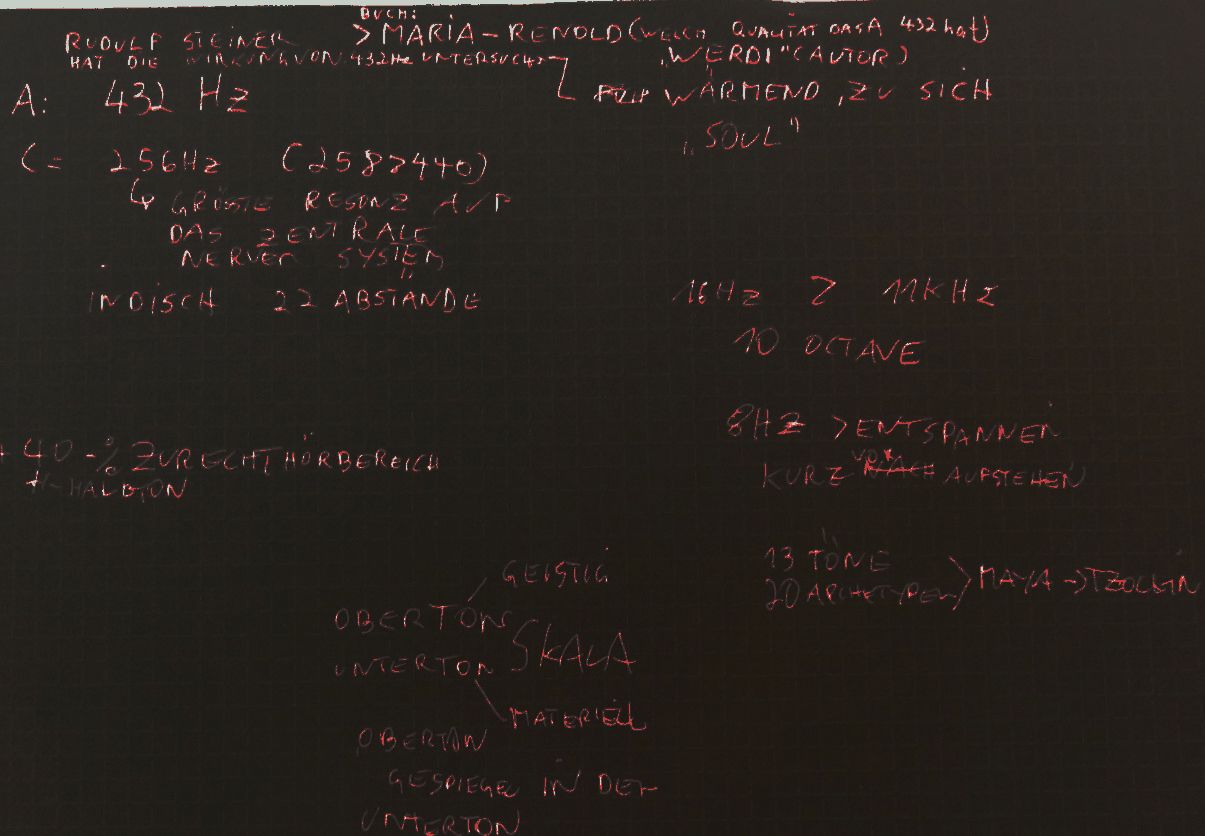 BUCH:
RUDOLF STEINER > MARIA - RENOLD (WELCH QUALITÄT DAS A 432 hat)
HAT DIE WIRKUNG VON 432Hz UNTERSUCHT
"WERDI" (AUTOR)
A: 432 Hz
WÄRMEND, ZU SICH
"SOUL"
C = 256Hz (258 > 440)
GRÖSTE RESONZ AUF
DAS ZENTRALE
NERVEN SYSTEM
INDISCH 22 ABSTÄNDE
16Hz > 11KHz
10 OCTAVE
8HZ > ENTSPANNEN
KURZ VOR AUFSTEHEN
+ 40 -% ZURECHTHÖRBEREICH
HALBTON
13 TÖNE
20 ARCHETYPEN > MAYA -> TZOLKIN
GEISTIG
OBERTON
SKALA
UNTERTON
MATERIELL
OBERTON
GESPIEGEL IN DER
UNTERTON